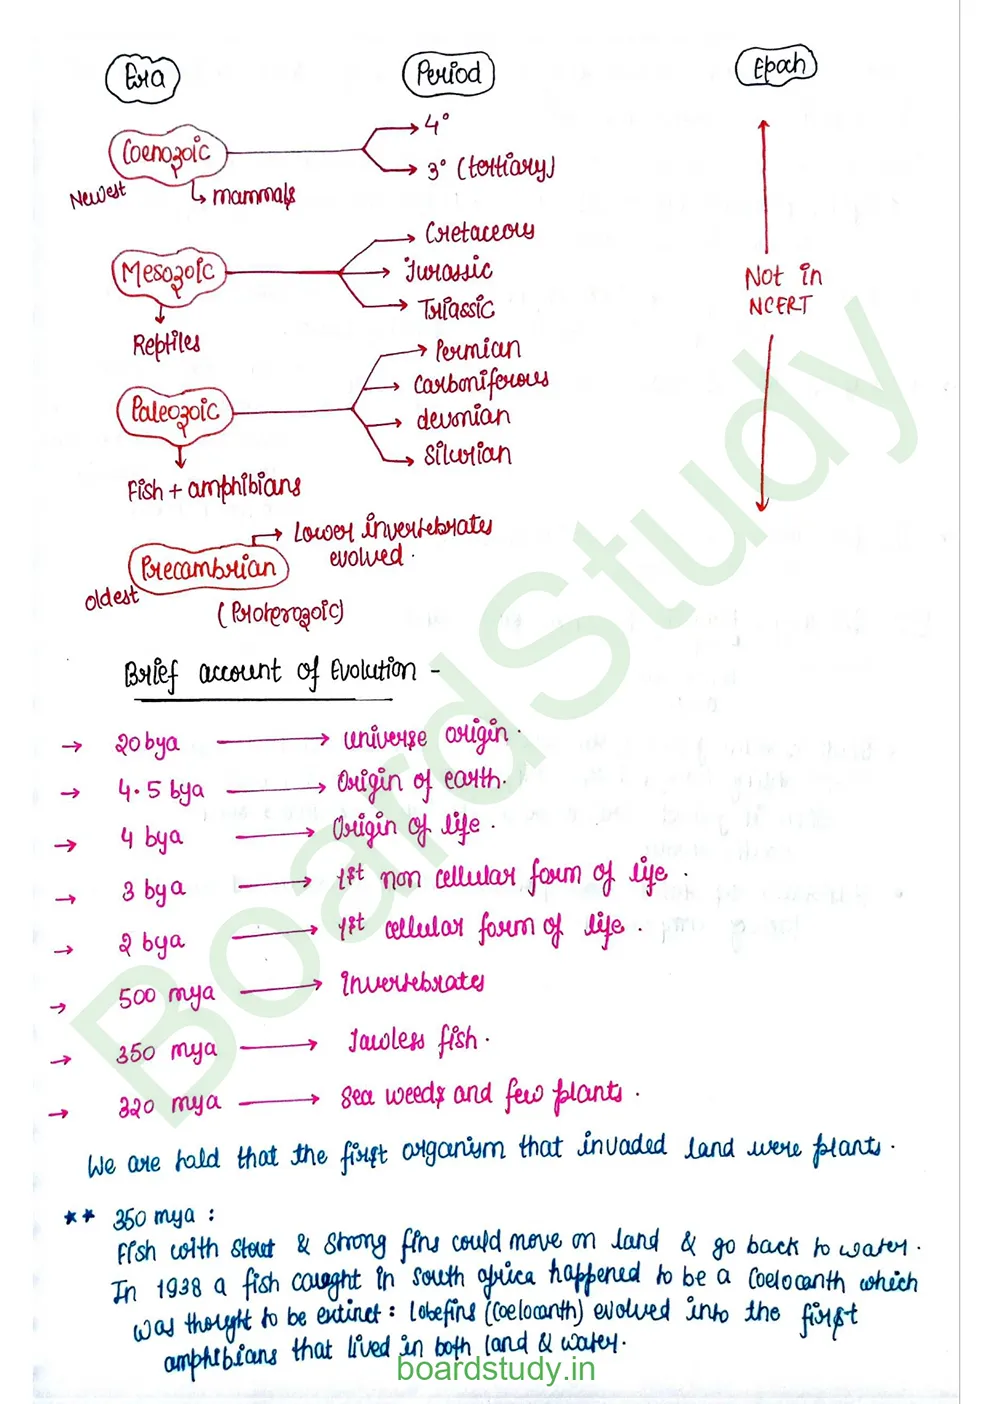 Era Period Epoch
Coenozoic
4°
3° (tertiary)
Newest
mammals
Mesozoic
Cretaceous
Jurassic
Triassic
Reptiles
Not in
NCERT
Paleozoic
Permian
Carboniferous
devonian
Silurian
Fish + amphibians
Precambrian
Lower invertebrates
evolved.
oldest
(Proterozoic)
Brief account of Evolution -
→ 20 bya → universe origin.
→ 4.5 bya → Origin of earth.
→ 4 bya → Origin of life.
→ 3 bya → 1st non cellular form of life.
→ 2 bya → 1st cellular form of life.
→ 500 mya → Invertebrates
→ 350 mya → Jawless fish.
→ 320 mya → Sea weeds and few plants.
We are told that the first organism that invaded land were plants.
** 350 mya :
Fish with stout & strong fins could move on land & go back to water.
In 1938 a fish caught in south africa happened to be a Coelocanth which
was thought to be extinct : lobefins (Coelocanth) evolved into the first
amphibians that lived in both land & water.
boardstudy.in
BoardStudy